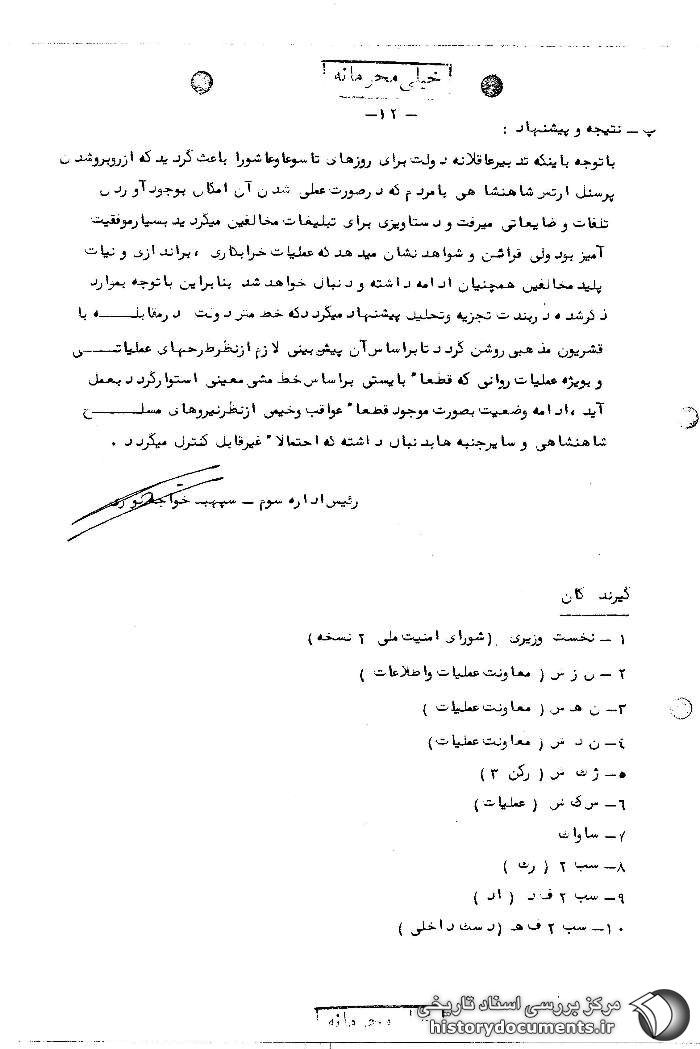 خیلی محرمانه
-۱۲-
پ - نتیجه و پیشنهاد :
باتوجه باینکه تدبیرعاقلانه دولت برای روزهای تاسوعاوعاشورا باعث گردیدکه ازروبروشدن
پرسنل ارتش شاهنشاهی بامردم که درصورت عملی شدن آن امکان بوجودآوردن
تلفات و ضایعاتی میرفت و دستاویزی برای تبلیغات مخالفین میگردید بسیارموفقیت
آمیز بودولی قرائن و شواهد نشان میدهدکه عملیات خرابکاری ، براندازی و نیات
پلید مخالفین همچنان ادامه داشته و دنبال خواهدشد بنابراین باتوجه بموارد
ذکرشده دربندت تجزیه وتحلیل پیشنهاد میگرددکه خط مشی دولت درمقابله با
قشریون مذهبی روشن گردد تابراساس آن پیش بینی لازم ازنظرطرحهای عملیاتی
و بویژه عملیات روانی که قطعا" بایستی براساس خط مشی معینی استوارگردد بعمل
آید ، ادامه وضعیت بصورت موجود قطعا" عواقب وخیمی ازنظرنیروهای مسلح
شاهنشاهی و سایرجنبه هابدنبال داشته که احتمالا" غیرقابل کنترل میگردد .
رئیس اداره سوم - سپهبد خواجه نوری
گیرندگان
۱ - نخست وزیری (شورای امنیت ملی ۲ نسخه)
۲ - ن ز ش ( معاونت عملیات واطلاعات )
۳- ن هـ ش ( معاونت عملیات )
۴- ن د ش ( معاونت عملیات)
۵- ژ ك ش ( رکن ۳ )
۶- س ک ش ( عملیات)
۷- ساواك
۸- سب ۲ ( رك )
۹- سب ۲ ف د ( اد )
۱۰- سب ۲ ف هـ (دست داخلی )
محرمانه
مرکز بررسی اسناد تاریخی
historydocuments.ir